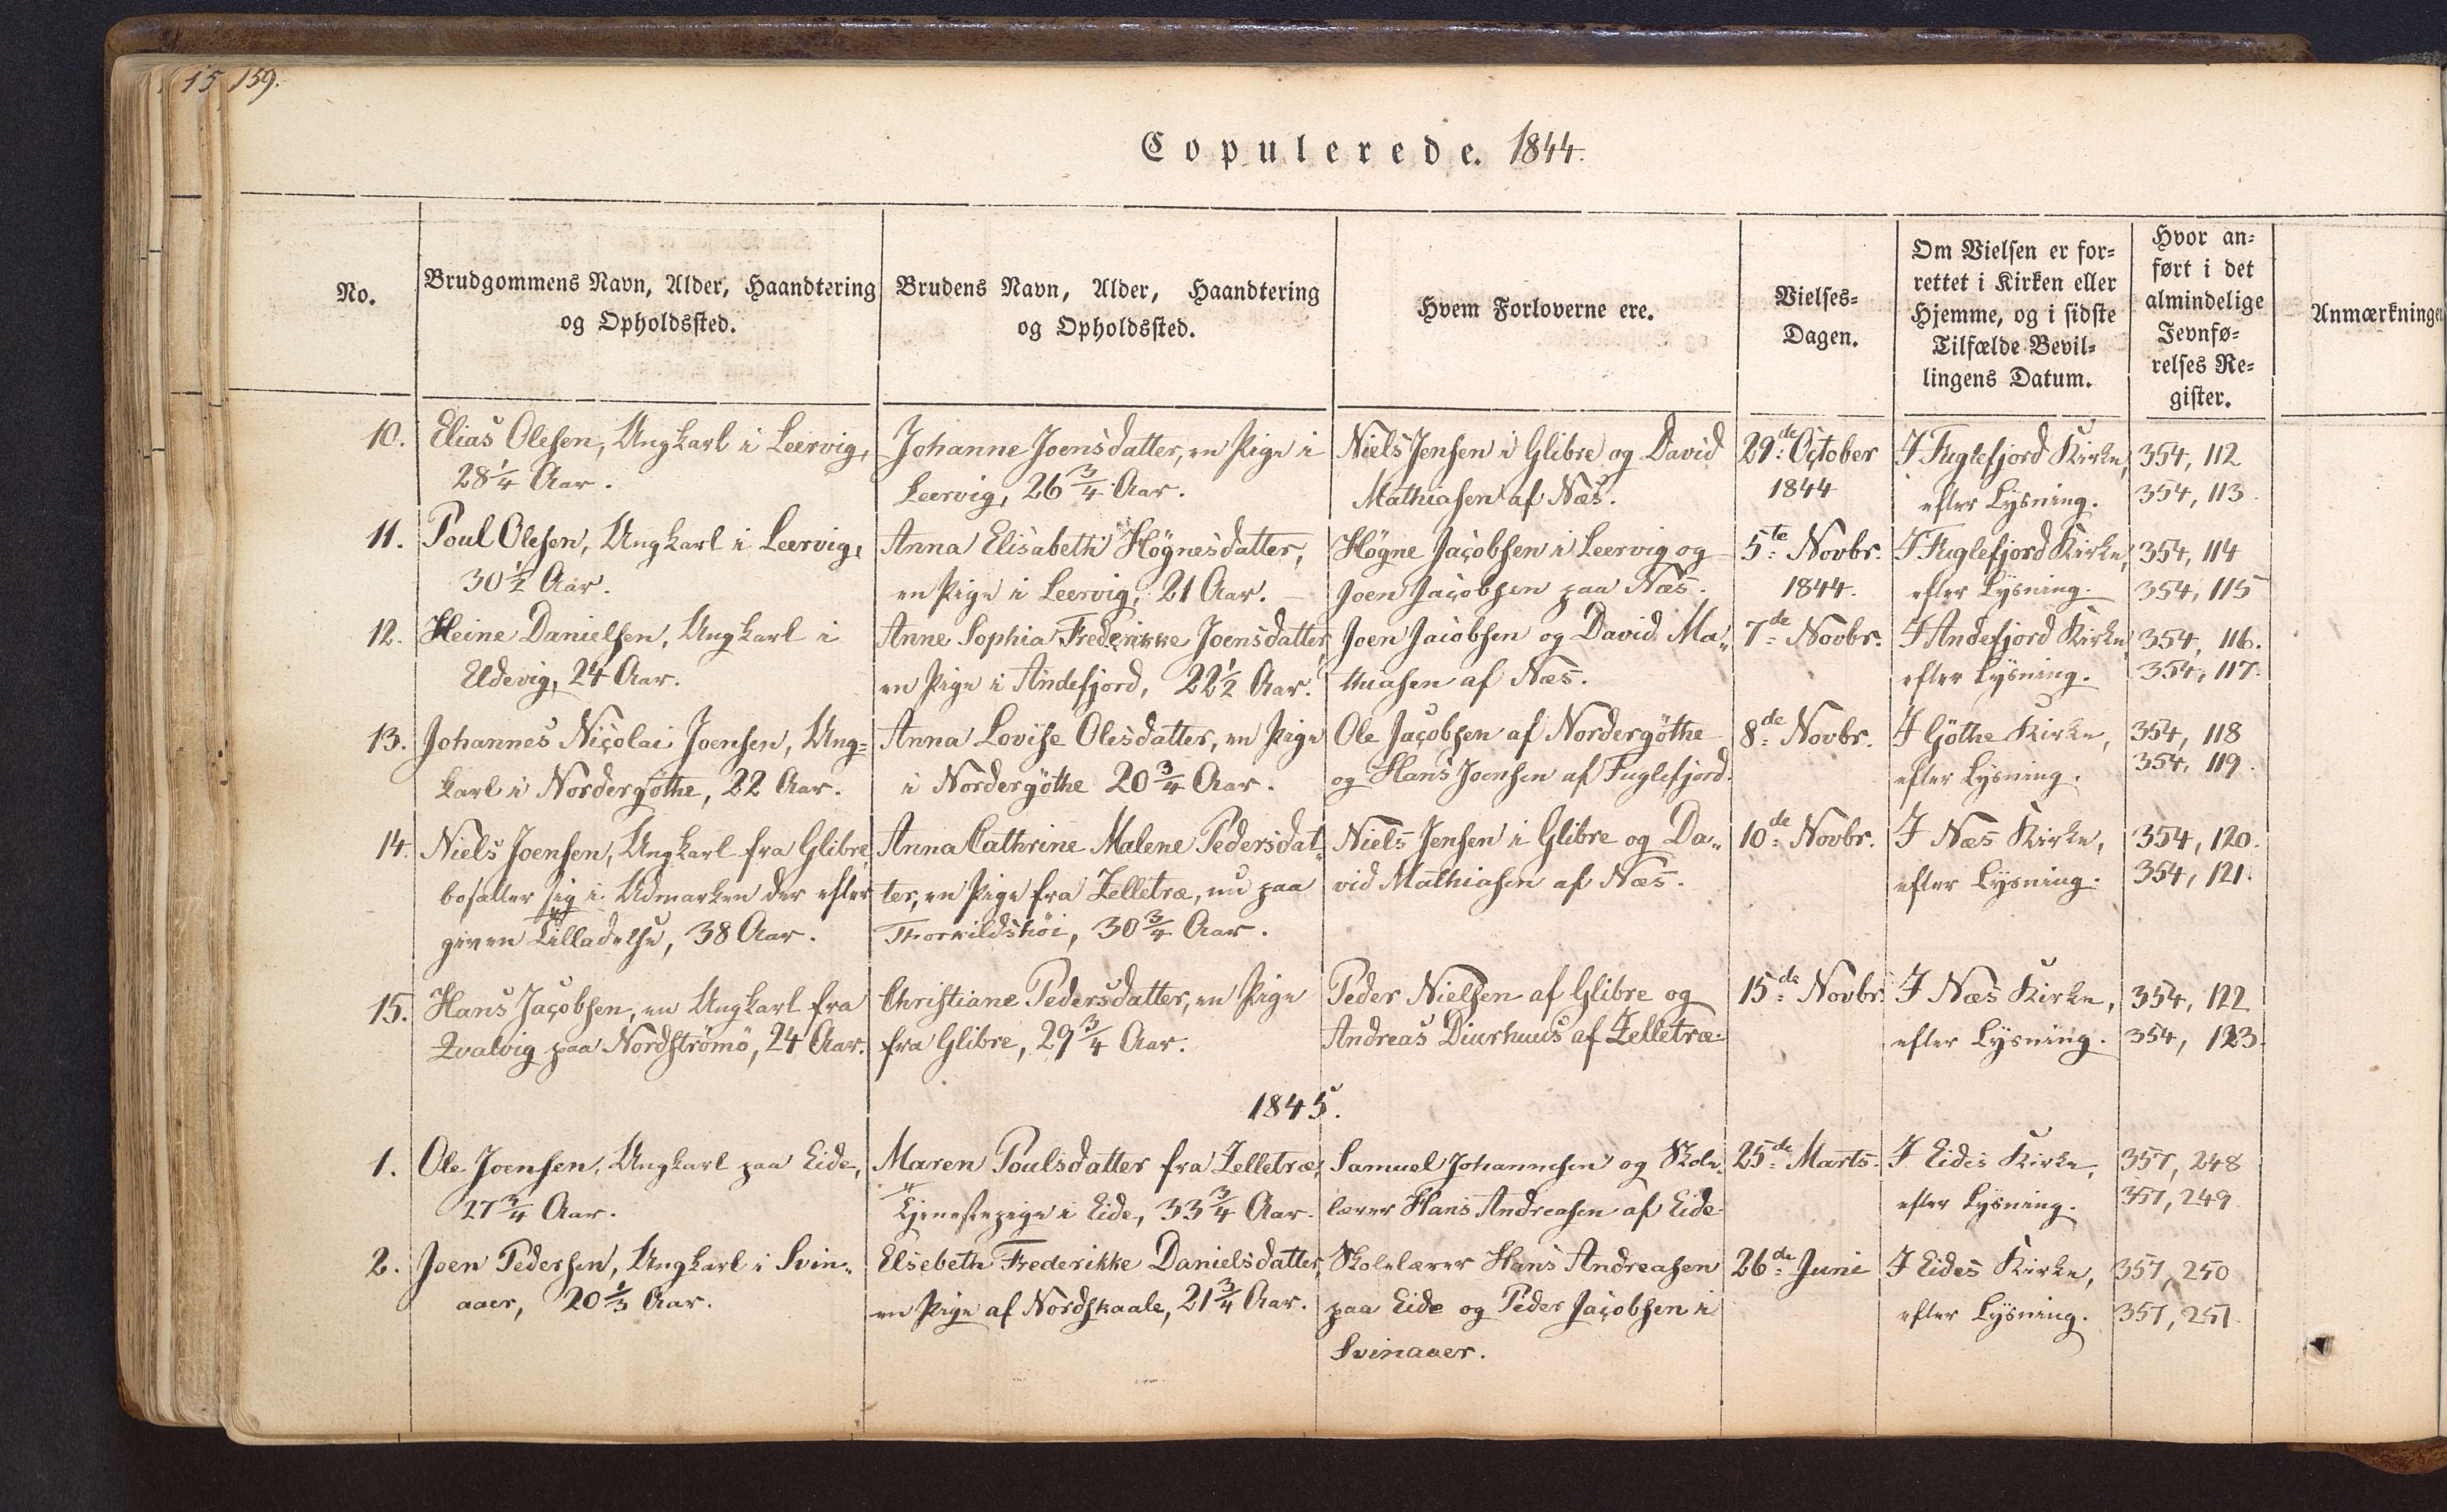 15 159.
Copulerede. 1844.
No.
Brudgommens Navn, Alder, Haandtering
og Opholdssted.
Brudens Navn, Alder, Haandtering
og Opholdssted.
Hvem Forloverne ere.
Vielses-
Dagen.
Om Vielsen er for-
rettet i Kirken eller
Hjemme, og i sidste
Tilfælde Bevil-
lingens Datum.
Hvor an-
ført i det
almindelige
Jevnfø-
relses Re-
gister.
Anmærkninge
10.
Elias Olesen, Ungkarl i Leervig,
28 1/4 Aar.
Johanne Joensdatter, en Pige i
Leervig, 26 3/4 Aar.
Niels Jensen i Glibre og David
Mathiasen af Næs.
29de October
1844
I Fuglefjord Kirke,
efter Lysning.
354, 112
354, 113.
11.
Poul Olesen, Ungkarl i Leervig,
30 1/2 Aar.
Anna Elisabeth Högnesdatter,
en Pige i Leervig, 21 Aar.
Högne Jacobsen i Leervig og
Joen Jacobsen paa Næs.
5te Novbr.
1844.
I Fuglefjord Kirke,
efter Lysning.
354, 114
354, 115
12.
Heine Danielsen, Ungkarl i
Eldevig, 24 Aar.
Anne Sophia Frederikke Joensdatter,
en Pige i Andefjord, 22 1/2 Aar.
Joen Jacobsen og David Ma„
thiasen af Næs.
7de Novbr.
I Andefjord Kirke,
efter Lysning.
354, 116.
354, 117.
13.
Johannes Nicolai Joensen, Ung=
karl i Nordergöthe, 22 Aar.
Anna Lovise Olesdatter, en Pige
i Nordergöthe 20 3/4 Aar.
Ole Jacobsen af Nordergöthe
og Hans Joensen af Fuglefjord.
8de Novbr.
I Göthe Kirke,
efter Lysning.
354, 118
354, 119.
14.
Niels Joensen, Ungkarl fra Glibre,
bosætter sig i Udmarken der efter
given Tilladelse, 38 Aar.
Anna Cathrine Malene Pedersdat„
ter, en Pige fra Zelletræ, nu paa
Thorkildshöi, 30 3/4 Aar.
Niels Jensen i Glibre og Da„
vid Mathiasen af Næs.
10de Novbr.
I Næs Kirke,
efter Lysning.
354, 120.
354, 121.
15.
Hans Jacobsen, en Ungkarl fra
Qvalvig paa Nordströmö, 24 Aar.
Christiane Pedersdatter, en Pige
fra Glibre, 29 3/4 Aar.
Peder Nielsen af Glibre og
Andreas Diurhuus af Zelletræ.
15de Novbr.
I Næs Kirke,
efter Lysning.
354, 122
354, 123.
1845.
1.
Ole Joensen, Ungkarl paa Eide,
27 3/4 Aar.
Maren Poulsdatter fra Zelletræ,
Tjenestepige i Eide, 33 3/4 Aar.
Samuel Johannesen og Skole„
lærer Hans Andreasen af Eide.
25de Marts.
I Eides Kirke,
efter Lysning.
357, 248
357, 249
2.
Joen Pedersen, Ungkarl i Svin„
aaer, 20 1/3 Aar.
Elsebeth Frederikke Danielsdatter,
en Pige af Nordskaale, 21 3/4 Aar.
Skolelærer Hans Andreasen
paa Eide og Peder Jacobsen i
Svinaaer.
26de Juni
I Eides Kirke,
efter Lysning.
357, 250
357, 251.